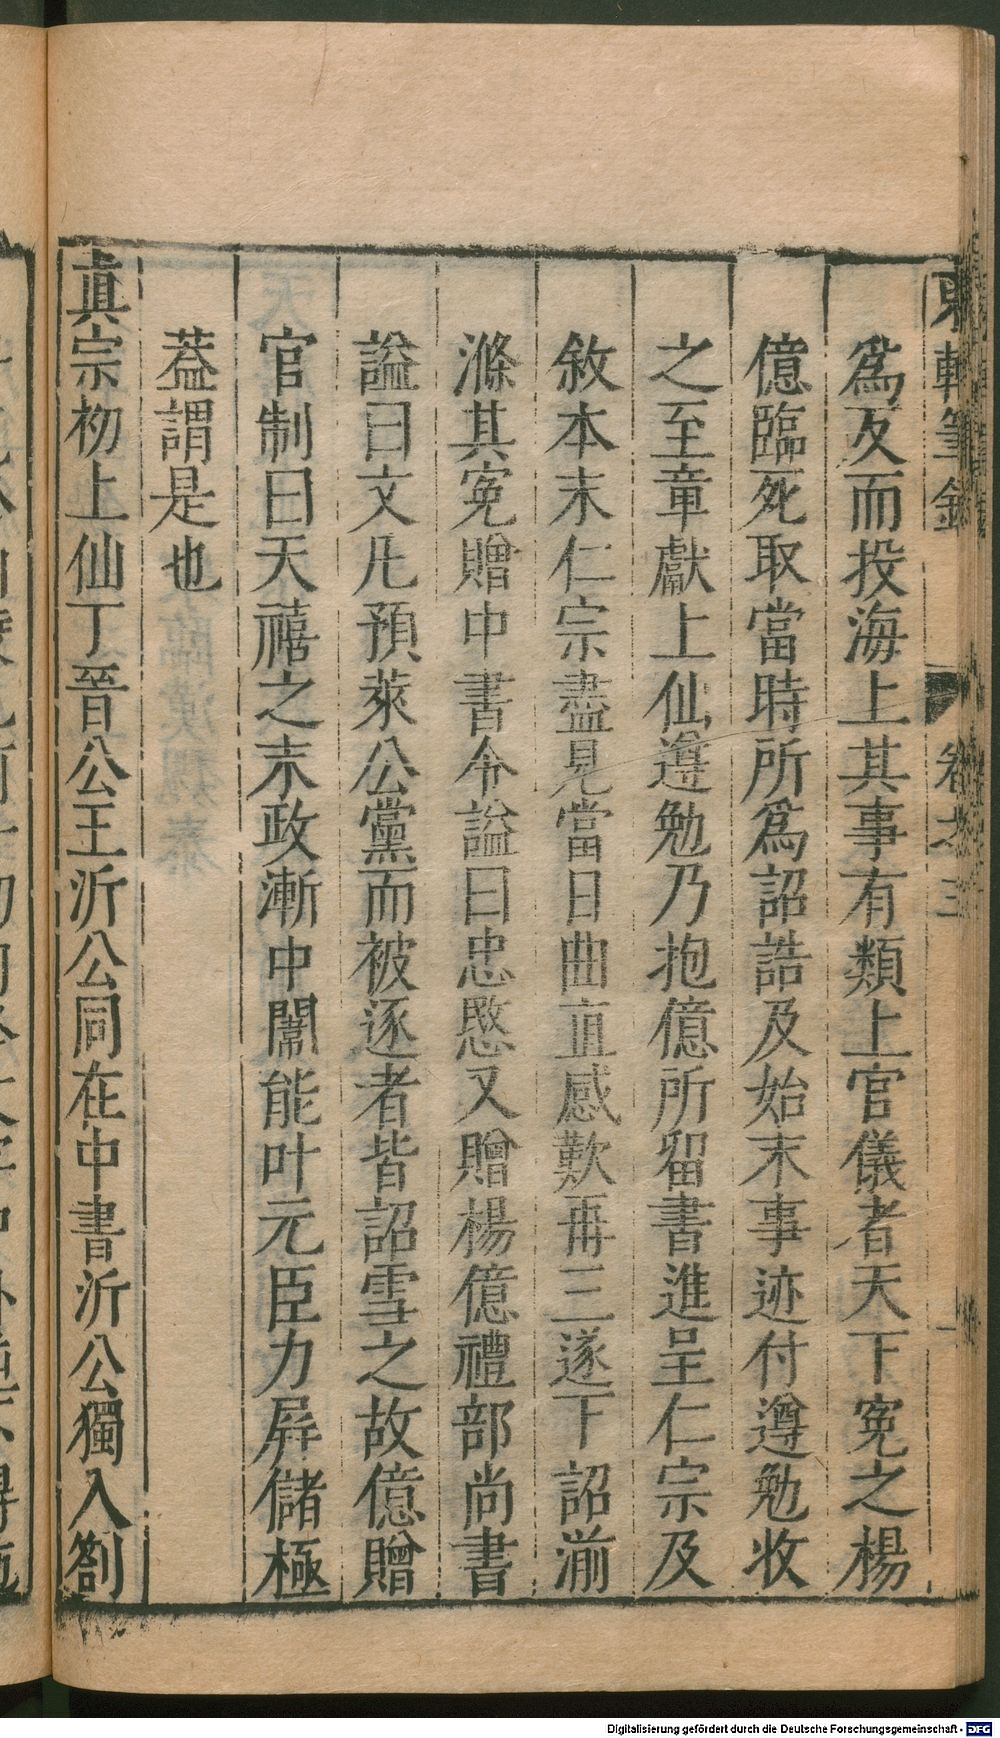 東軒筆錄 卷之三
爲反而投海上其事有類上官儀者天下寃之楊
億臨死取當時所爲詔誥及始末事迹付遵勉收
之至章獻上仙遵勉乃抱億所留書進呈仁宗及
敘本末仁宗盡見當日曲直感歎再三遂下詔湔
滌其寃贈中書令謚曰忠愍又贈楊億禮部尚書
謚曰文凡預萊公黨而被逐者皆詔雪之故億贈
官制曰天禧之末政漸中闈能叶元臣力屛儲極
葢謂是也
眞宗初上仙丁晉公王沂公同在中書沂公獨入劄
Digitalisierung gefördert durch die Deutsche Forschungsgemeinschaft - DFG